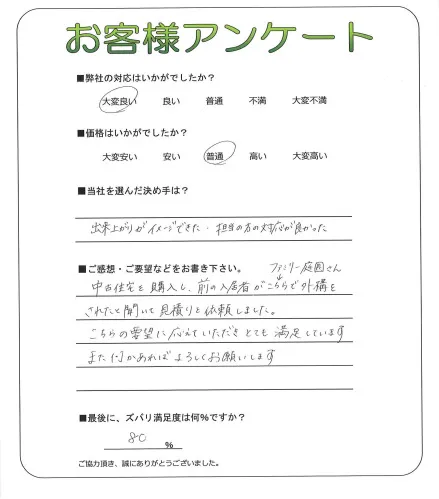 お客様アンケート
■弊社の対応はいかがでしたか？
大変良い 良い 普通 不満 大変不満
■価格はいかがでしたか？
大変安い 安い 普通 高い 大変高い
■当社を選んだ決め手は？
出来上がりがイメージできた・担当の方の対応が良かった
■ご感想・ご要望などをお書き下さい。
ファミリー庭園さん
中古住宅を購入し、前の入居者がこちらで外構を
されたと聞いて見積りを依頼しました。
こちらの要望に応えていただきとても満足しています
また何かあればよろしくお願いします
■最後に、ズバリ満足度は何％ですか？
80 %
ご協力頂き、誠にありがとうございました。